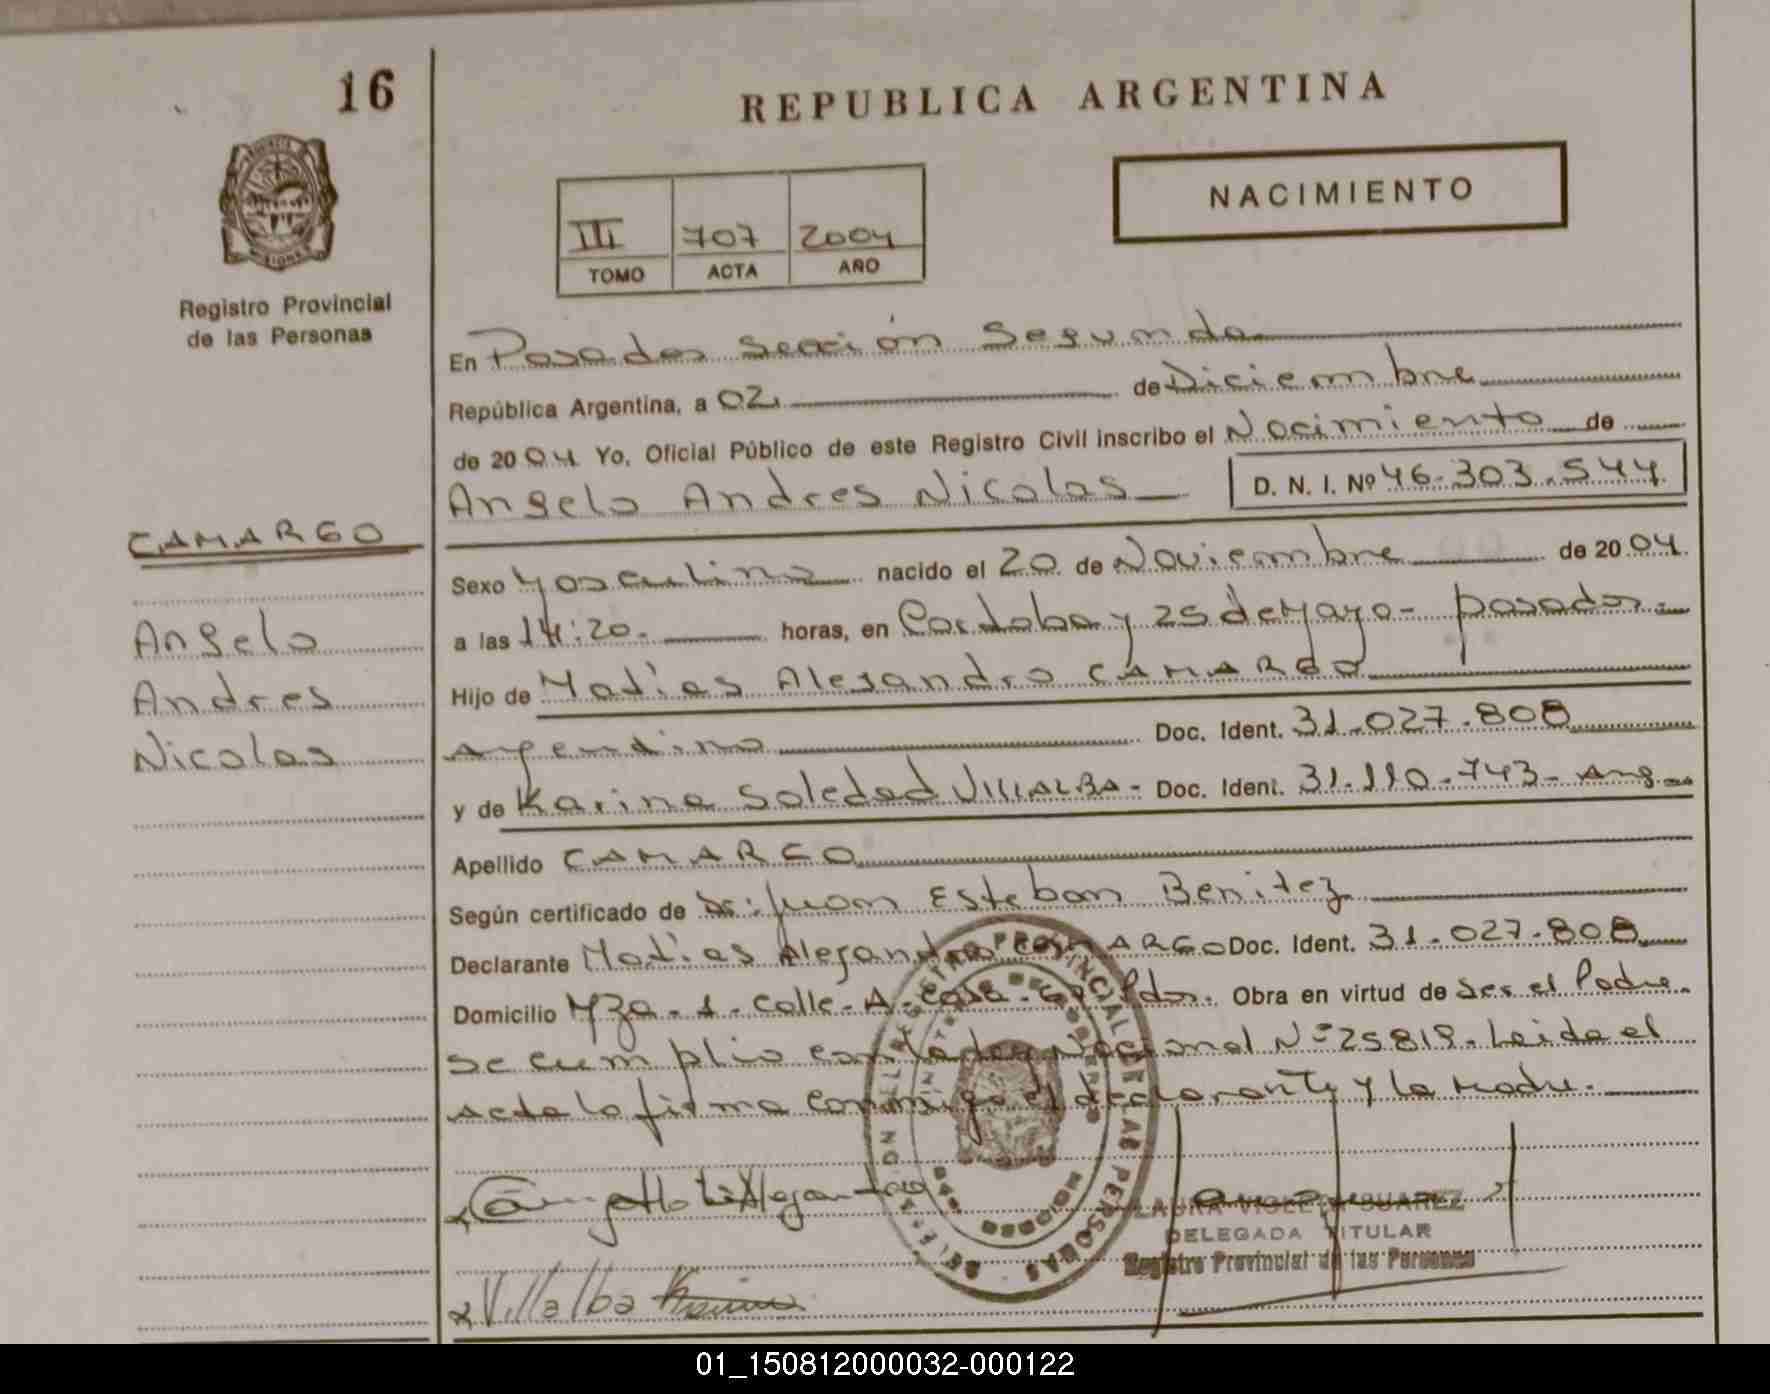 16
REPUBLICA ARGENTINA
NACIMIENTO
III 707 2004
TOMO ACTA AÑO
MISIONES
Registro Provincial
de las Personas
En Posadas Sección Segunda
República Argentina, a 02 de Diciembre
de 2004 Yo, Oficial Público de este Registro Civil inscribo el Nacimiento de
Angelo Andres Nicolas D. N. I. Nº 46.303.544
CAMARGO
Angelo
Andres
Nicolas
Sexo Masculino nacido el 20 de Noviembre de 2004
a las 14:20 horas, en Cordoba y 25 de Mayo - Posadas -
Hijo de Matias Alejandro CAMARGO
Argentino Doc. Ident. 31.027.808
y de Karina Soledad VILLALBA - Doc. Ident. 31.110.743 - Arg.
Apellido CAMARGO
Según certificado de Dr. Juan Esteban Benitez
Declarante Matias Alejandro CAMARGO Doc. Ident. 31.027.808
Domicilio Mza. 1. Calle - A - Casa - Pdas. Obra en virtud de ser el Padre.
Se cumplio con la Ley Nacional Nº 25819. Leida el
acta la firma conmigo el declarante y la madre.
Villalba Karina
LAURA VIOLETA SUAREZ
DELEGADA TITULAR
Registro Provincial de las Personas
REGISTRO PROVINCIAL DE LAS PERSONAS
01_150812000032-000122